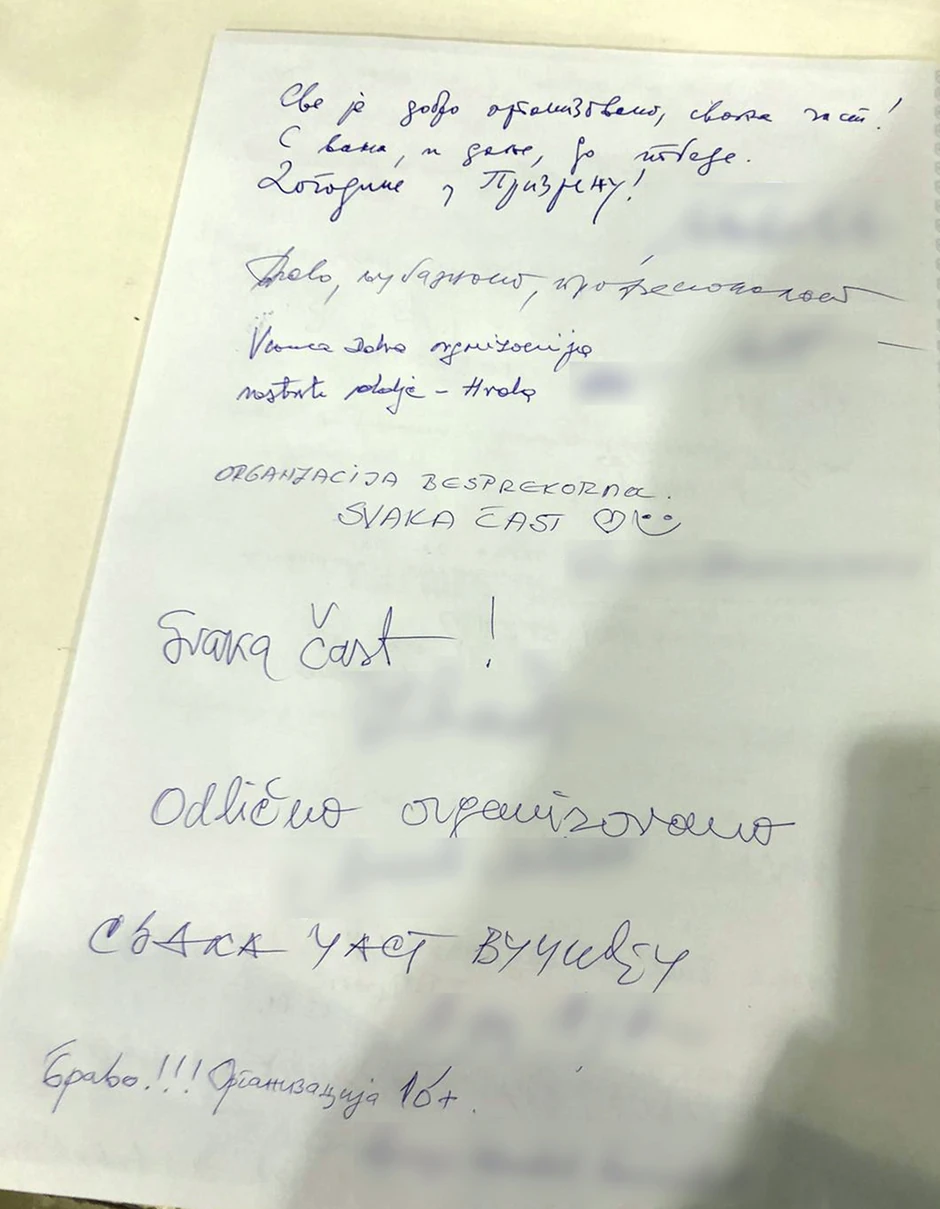 Све је добро организовано, свака част!
С вама, и даље, до победе.
Догодине у Призрену!
Браво, љубазност, професионалност
Veoma dobra organizacija
nastavite dalje - Hvala
ORGANIZACIJA BESPREKORNA.
SVAKA ČAST
Svaka čast !
Odlično organizovano
СВАКА ЧАСТ ВУЧИЋУ
Браво!!! Организација 10+.